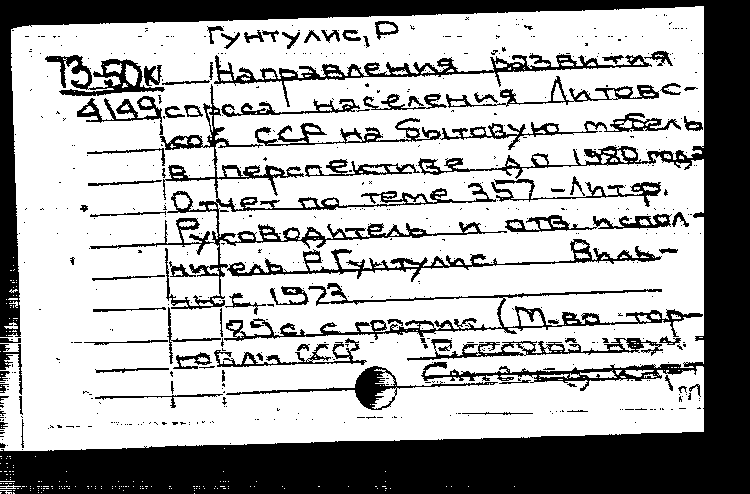 Гунтулис, Р
73-50к Направления развития
4149 спроса населения Литовс-
кой ССР на бытовую мебель
в перспективе до 1980 года
Отчет по теме 357-Литф.
Руководитель и отв. испол-
нитель Р. Гунтулис. Виль-
нюс, 1973.
89с. с график. (М-во тор-
говли СССР. Всесоюз. науч.-
См. след. карт